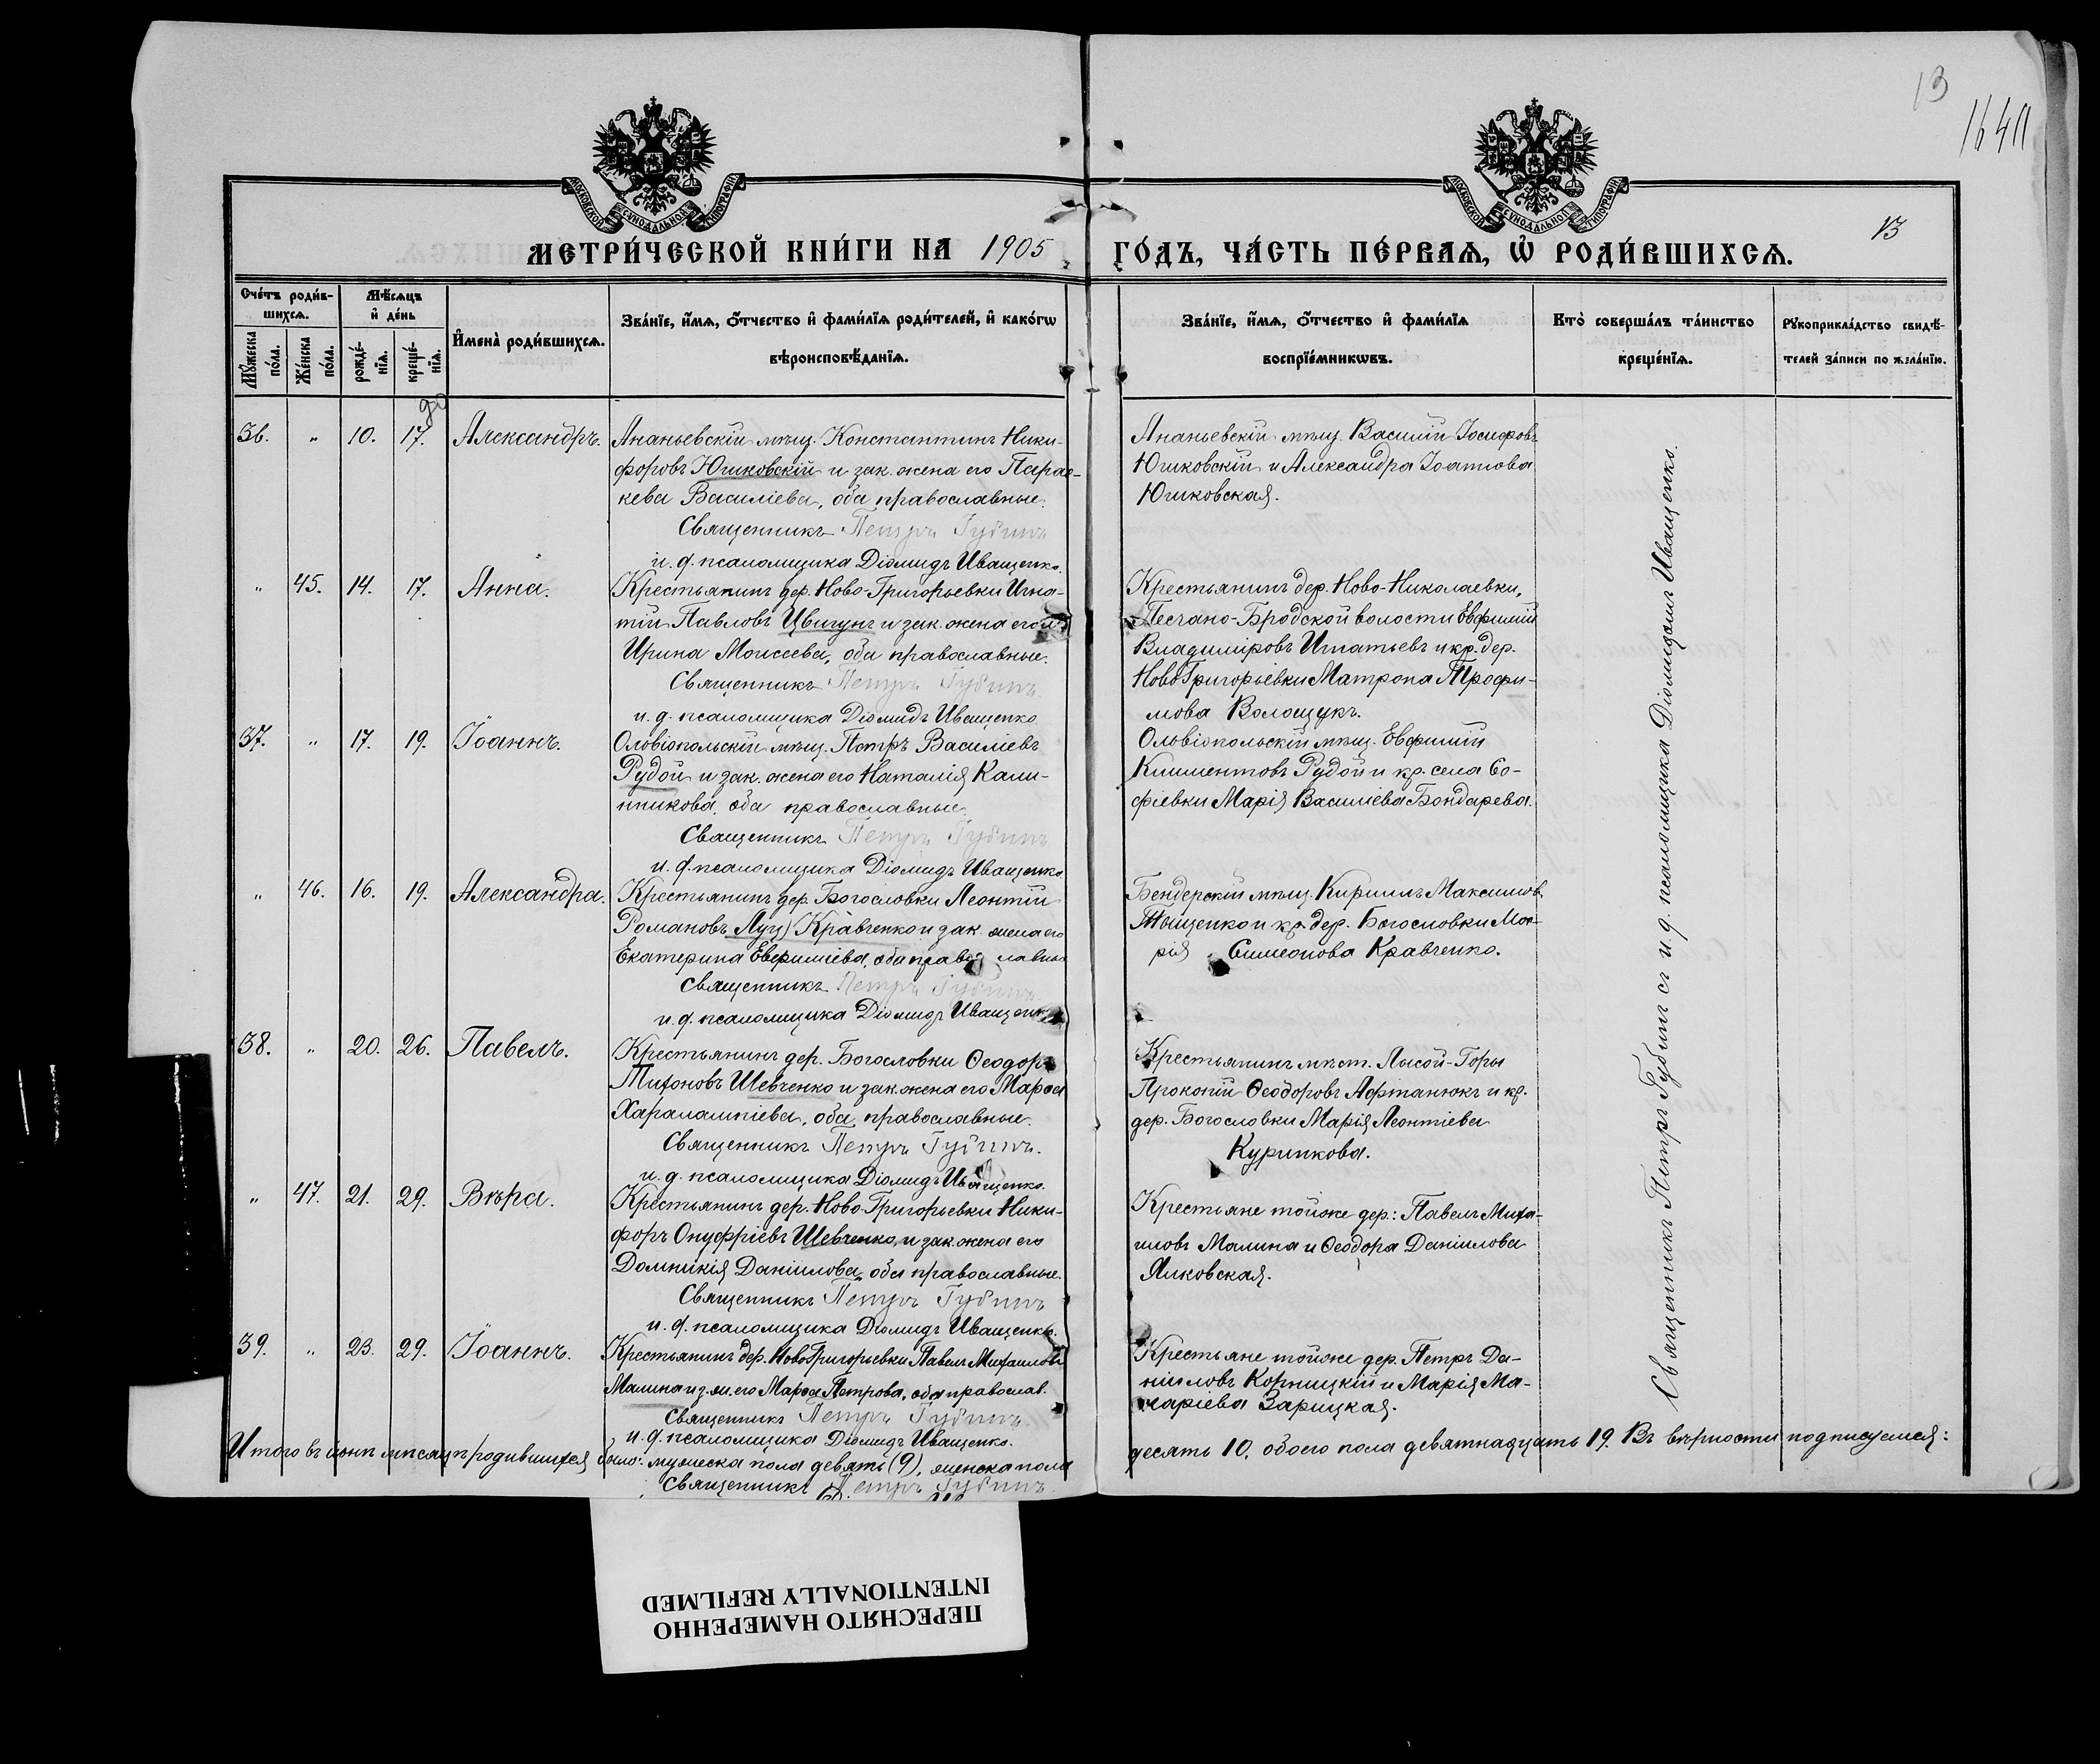 13
164п
МОСКОВСКОЙ СѴНОДАЛЬНОЙ ТИПОГРАФІИ
МОСКОВСКОЙ СѴНОДАЛЬНОЙ ТИПОГРАФІИ
МЕТРИ́ЧЕСКОЙ КНИ́ГИ НА 1905 ГО́ДЪ, ЧА́СТЬ ПЕ́РВАѦ, Ѽ РОДИ́ВШИХСѦ.
13
Счéтъ роди́в-
шихсѧ.
Мѣ́сѧцъ
и҆ дéнь
Мꙋ́жеска
по́ла.
Же́нска
по́ла.
рожде́-
нїѧ.
креще́-
нїѧ.
И҆мена̀ роди́вшихсѧ.
Зва́нїе, и҆́мѧ, ѻ҆́тчество и҆ фами́лїѧ роди́телей, и҆ како́гѡ
вѣроисповѣ́данїѧ.
Зва́нїе, и҆́мѧ, ѻ҆́тчество и҆ фами́лїѧ
воспрїе́мникѡвъ.
Кто̀ соверша́лъ та́инство
креще́нїѧ.
Рꙋкоприкла́дство свидѣ́-
телей за́писи по жела́нїю.
36. " 10. 17. Александръ.
Ананьевскій мѣщ. Константинъ Ники-
форовъ Юшковскій и зак. жена его Парас-
кева Василіева, оба православные.
Священникъ Петръ Губинъ
и. д. псаломщика Діомидъ Иващенко.
Ананьевскій мѣщ. Василій Іосифовъ
Юшковскій и Александра Іоаннова
Юшковская.
" 45. 14. 17. Анна.
Крестьянинъ дер. Ново-Григорьевки Игна-
тій Павловъ Цвигунъ и зак. жена его
Ирина Моисеева, оба православные.
Священникъ Петръ Губинъ
и. д. псаломщика Діомидъ Иващенко
Крестьянинъ дер. Ново-Николаевки,
Песчано-Бродской волости Евфимій
Владиміровъ Игнатьевъ и кр. дер.
Ново Григорьевки Матрона Трофи-
мова Волощукъ.
37. " 17. 19. Іоаннъ.
Оловіопольскій мѣщ. Петръ Василіевъ
Рудой и зак. жена его Наталія Кали-
никова, оба православные.
Священникъ Петръ Губинъ
и. д. псаломщика Діомидъ Иващенко
Ольвіопольскій мѣщ. Евфимій
Климентовъ Рудой и кр. села Со-
фіевки Марія Василіева Бондарева.
" 46. 16. 19. Александра.
Крестьянинъ дер. Богословки Леонтій
Романовъ Луц) Кравченко и зак. жена его
Екатерина Евфиміева, оба православны
Священникъ Петръ Губинъ
и. д. псаломщика Діомидъ Иващенко
Бендерскій мѣщ. Кириллъ Максимов.
Тыщенко и кр. дер. Богословки Ма-
рія Симеонова Кравченко.
38. " 20. 26. Павелъ.
Крестьянинъ дер. Богословки Ѳеодоръ
Тихоновъ Шевченко и зак. жена его Марѳа
Харалампіева, оба православные.
Священникъ Петръ Губинъ.
и. д. псаломщика Діомидъ Иващенко.
Крестьянинъ мѣст. Лысой-Горы
Прокопій Ѳеодоровъ Афтанюкъ и кр.
дер. Богословки Марія Леонтіева
Курипкова.
" 47. 21. 29. Вѣра.
Крестьянинъ дер. Ново-Григорьевки Ники-
форъ Онуфріевъ Шевченко, и зак. жена его
Домникія Даніилова, оба православные.
Священникъ Петръ Губинъ
и. д. псаломщика Діомидъ Иващенко.
Крестьяне тойже дер.: Павелъ Миха-
иловъ Малина и Ѳеодора Даніилова
Ялковская.
39. " 23. 29. Іоаннъ.
Крестьянинъ дер. Ново Григорьевки Павелъ Михаиловъ
Малина и з. ж. его Марѳа Петрова, оба православ.
Священникъ Петръ Губинъ
и. д. псаломщика Діомидъ Иващенко.
Крестьяне тойже дер. Петръ Да-
ніиловъ Корницкій и Марія Ма-
каріева Зарицкая.
Священникъ Петръ Губинъ съ и. д. псаломщика Діомидомъ Иващенко.
Итого въ іюнѣ мѣсяцѣ родившихся было: мужеска пола девять (9), женска пола десять 10, обоего пола девятнадцать 19. Въ вѣрности подписуемся:
Священникъ Петръ Губинъ
ПЕРЕСНЯТО НАМЕРЕННО
INTENTIONALLY REFILMED